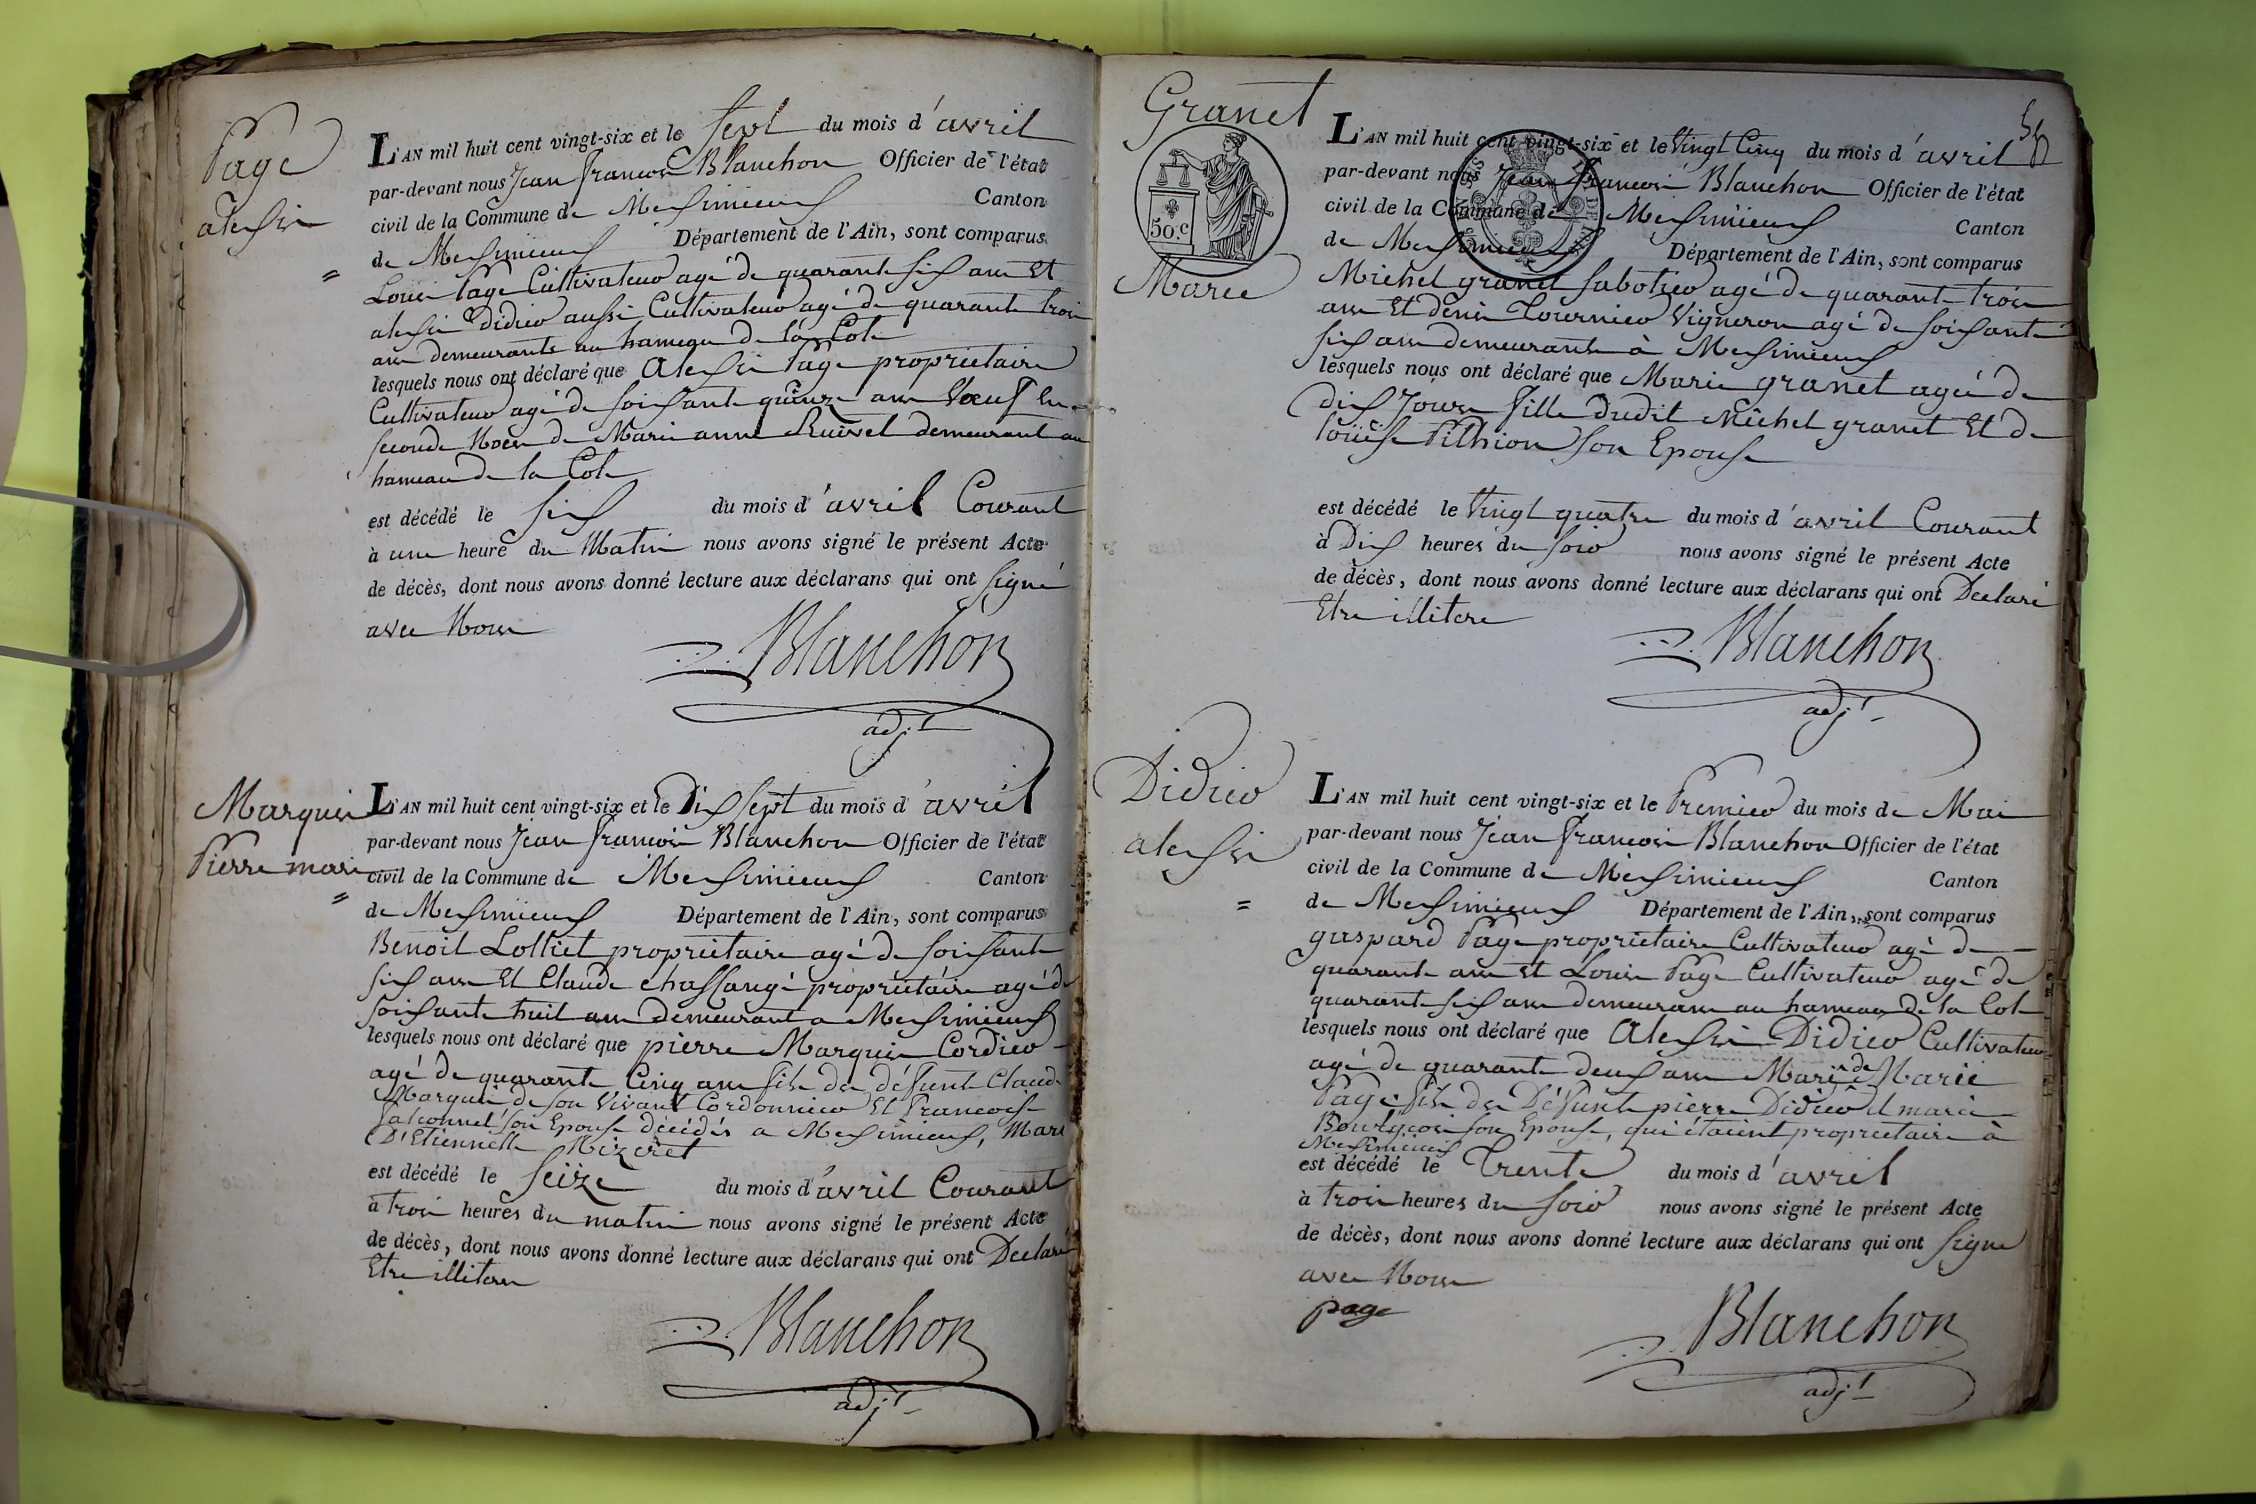 Page
alexi
=
L'AN mil huit cent vingt-six et le Sept du mois d'avril
par-devant nous Jean francois Blanchon Officier de l'état
civil de la Commune de Messimieux Canton
de Messimieux Département de l'Ain, sont comparus
Louis Page Cultivateur agé de quarante six ans Et
alexi Didier aussi Cultivateur agé de quarante trois
ans demeurants au hameau de la Cote
lesquels nous ont déclaré que Alexi Page proprietaire
Cultivateur agé de soixante quinze ans Vœuf En
seconde Noces de Marie anne demeurant au
hameau de la Cote
est décédé le six du mois d'avril Courant
à une heure du Matin nous avons signé le présent Acte
de décès, dont nous avons donné lecture aux déclarans qui ont signé
avec Nous
Blanchon
adjt
Marquis
Pierre marie
=
L'AN mil huit cent vingt-six et le Dix Sept du mois d'avril
par-devant nous Jean francois Blanchon Officier de l'état
civil de la Commune de Messimieux Canton
de Messimieux Département de l'Ain, sont comparus
Benoit Lolliet proprietaire agé de soixante
six ans Et Claude chassangé propriétaire agé de
soixante huit ans demeurant a Messimieux
lesquels nous ont déclaré que pierre Marquis Cordier
agé de quarante Cinq ans fils de défunt Claude
Marquis de son Vivant Cordonnier Et Francoise
falconnet son Epouse décédés a Messimieux, Mari
D'Etiennette Mizeret
est décédé le Seize du mois d'avril Courant
à trois heures du matin nous avons signé le présent Acte
de décès, dont nous avons donné lecture aux déclarans qui ont Declaré
Etre illiteres
Blanchon
adjt
Granet
50.c
Marie
L'AN mil huit cent vingt-six et le Vingt Cinq du mois d'avril
par-devant nous Jean francois Blanchon Officier de l'état
civil de la Commune de Messimieux Canton
de Messimieux Département de l'Ain, sont comparus
Michel granet Sabotier agé de quarante trois
ans Et denis Tournier Vigneron agé de soixante
six ans demeurants à Messimieux
lesquels nous ont déclaré que Marie granet agée de
dix Jours fille dudit Michel granet Et de
loüise Pilhion son Epouse
est décédé le Vingt quatre du mois d'avril Courant
à Dix heures du soir nous avons signé le présent Acte
de décès, dont nous avons donné lecture aux déclarans qui ont Declaré
Etre illitere
Blanchon
adjt
Didier
alexi
=
L'AN mil huit cent vingt-six et le Premier du mois de Mai
par-devant nous Jean francois Blanchon Officier de l'état
civil de la Commune de Messimieux Canton
de Messimieux Département de l'Ain, sont comparus
gaspard Page proprietaire Cultivateur agé de
quarante ans Et Louis Page Cultivateur agé de
quarante six ans demeurans au hameau de la Cote
lesquels nous ont déclaré que Alexi Didier Cultivateur
agé de quarante deux ans Mari de Marie
Page fils de Défunt pierre Didier Et marie
son Epouse, qui étaient proprietaire à
Messimieux
est décédé le Trente du mois d'avril
à trois heures du soir nous avons signé le présent Acte
de décès, dont nous avons donné lecture aux déclarans qui ont signé
avec Nous
page
Blanchon
adjt